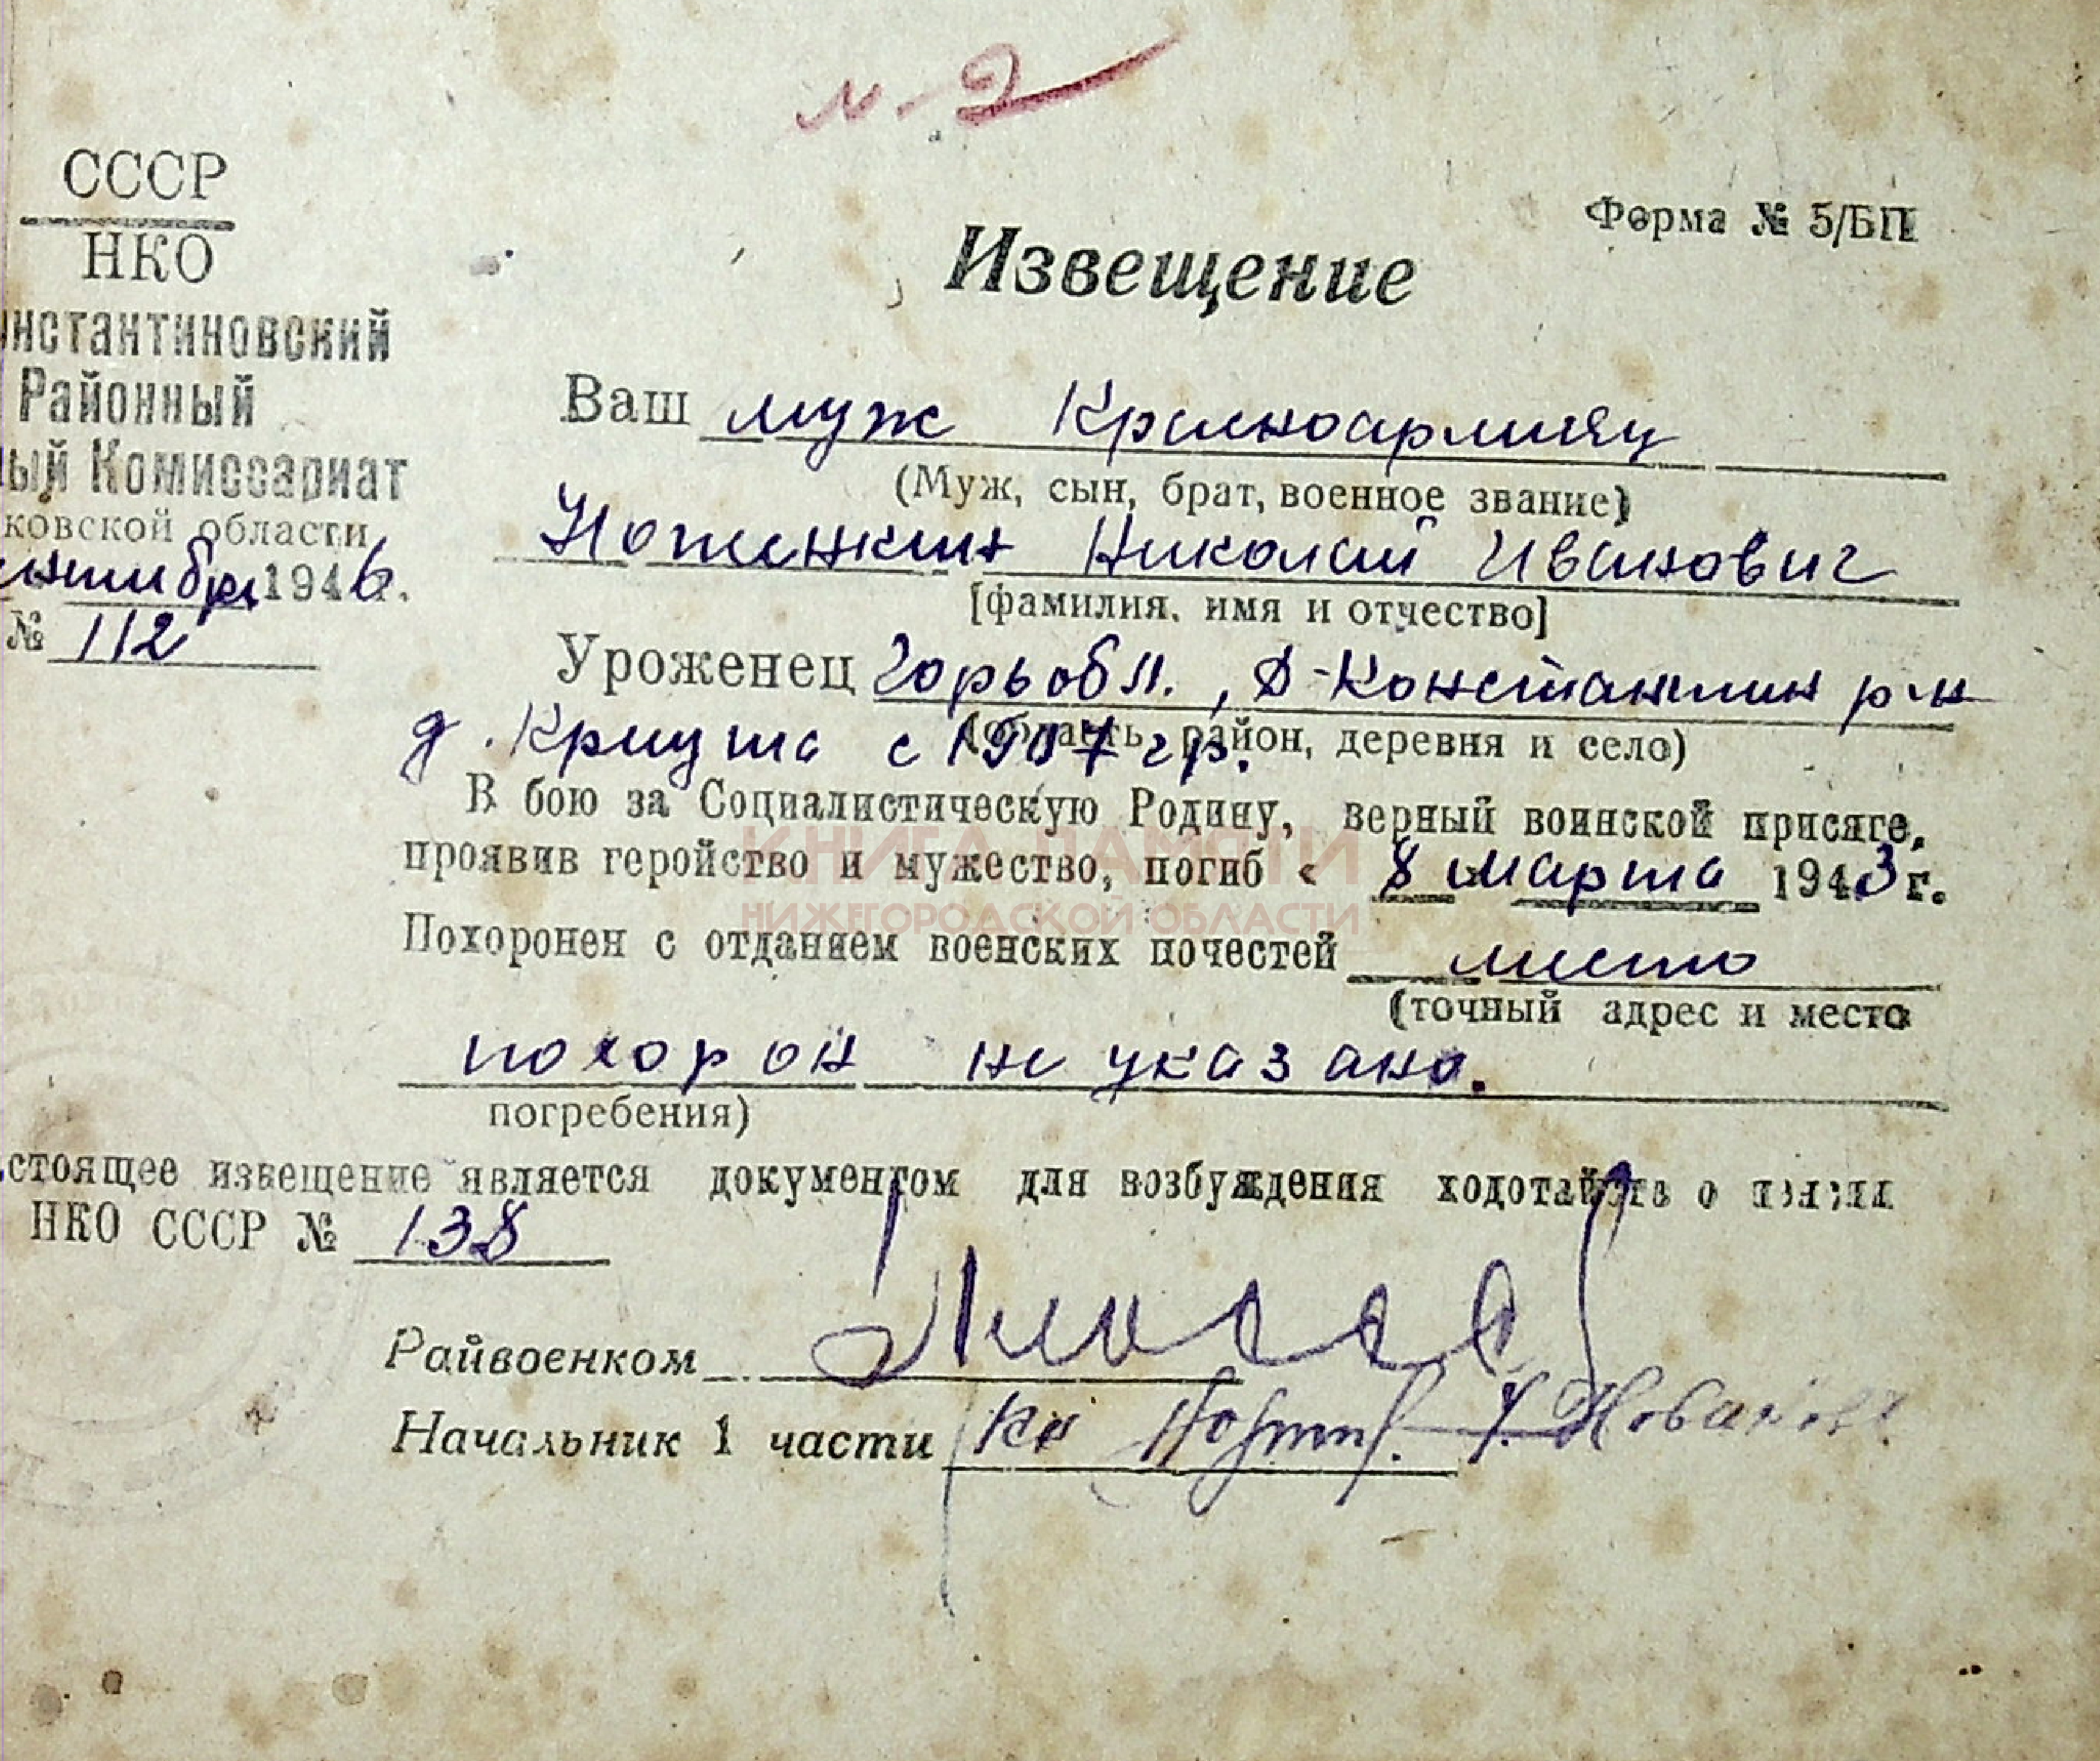 м-2
СССР
НКО
нстантиновский
Районный
ый Комиссариат
ковской области
1946г.
№ 112
Форма № 5/БП
Извещение
Ваш муж Красноармеец
(Муж, сын, брат, военное звание)
Ноженкин Николай Иванович
[фамилия, имя и отчество]
Уроженец Горьк обл., Д-Константин р-н
(область, район, деревня и село)
д. Криуша с 1907 гр.
В бою за Социалистическую Родину, верный воинской присяге,
проявив геройство и мужество, погиб « 8 » марта 1943 г.
КНИГА ПАМЯТИ
НИЖЕГОРОДСКОЙ ОБЛАСТИ
Похоронен с отданием военских почестей место
(точный адрес и место
похорон не указано.
погребения)
стоящее извещение является документом для возбуждения ходотайств о пенсии
НКО СССР № 138
Райвоенком
Начальник 1 части